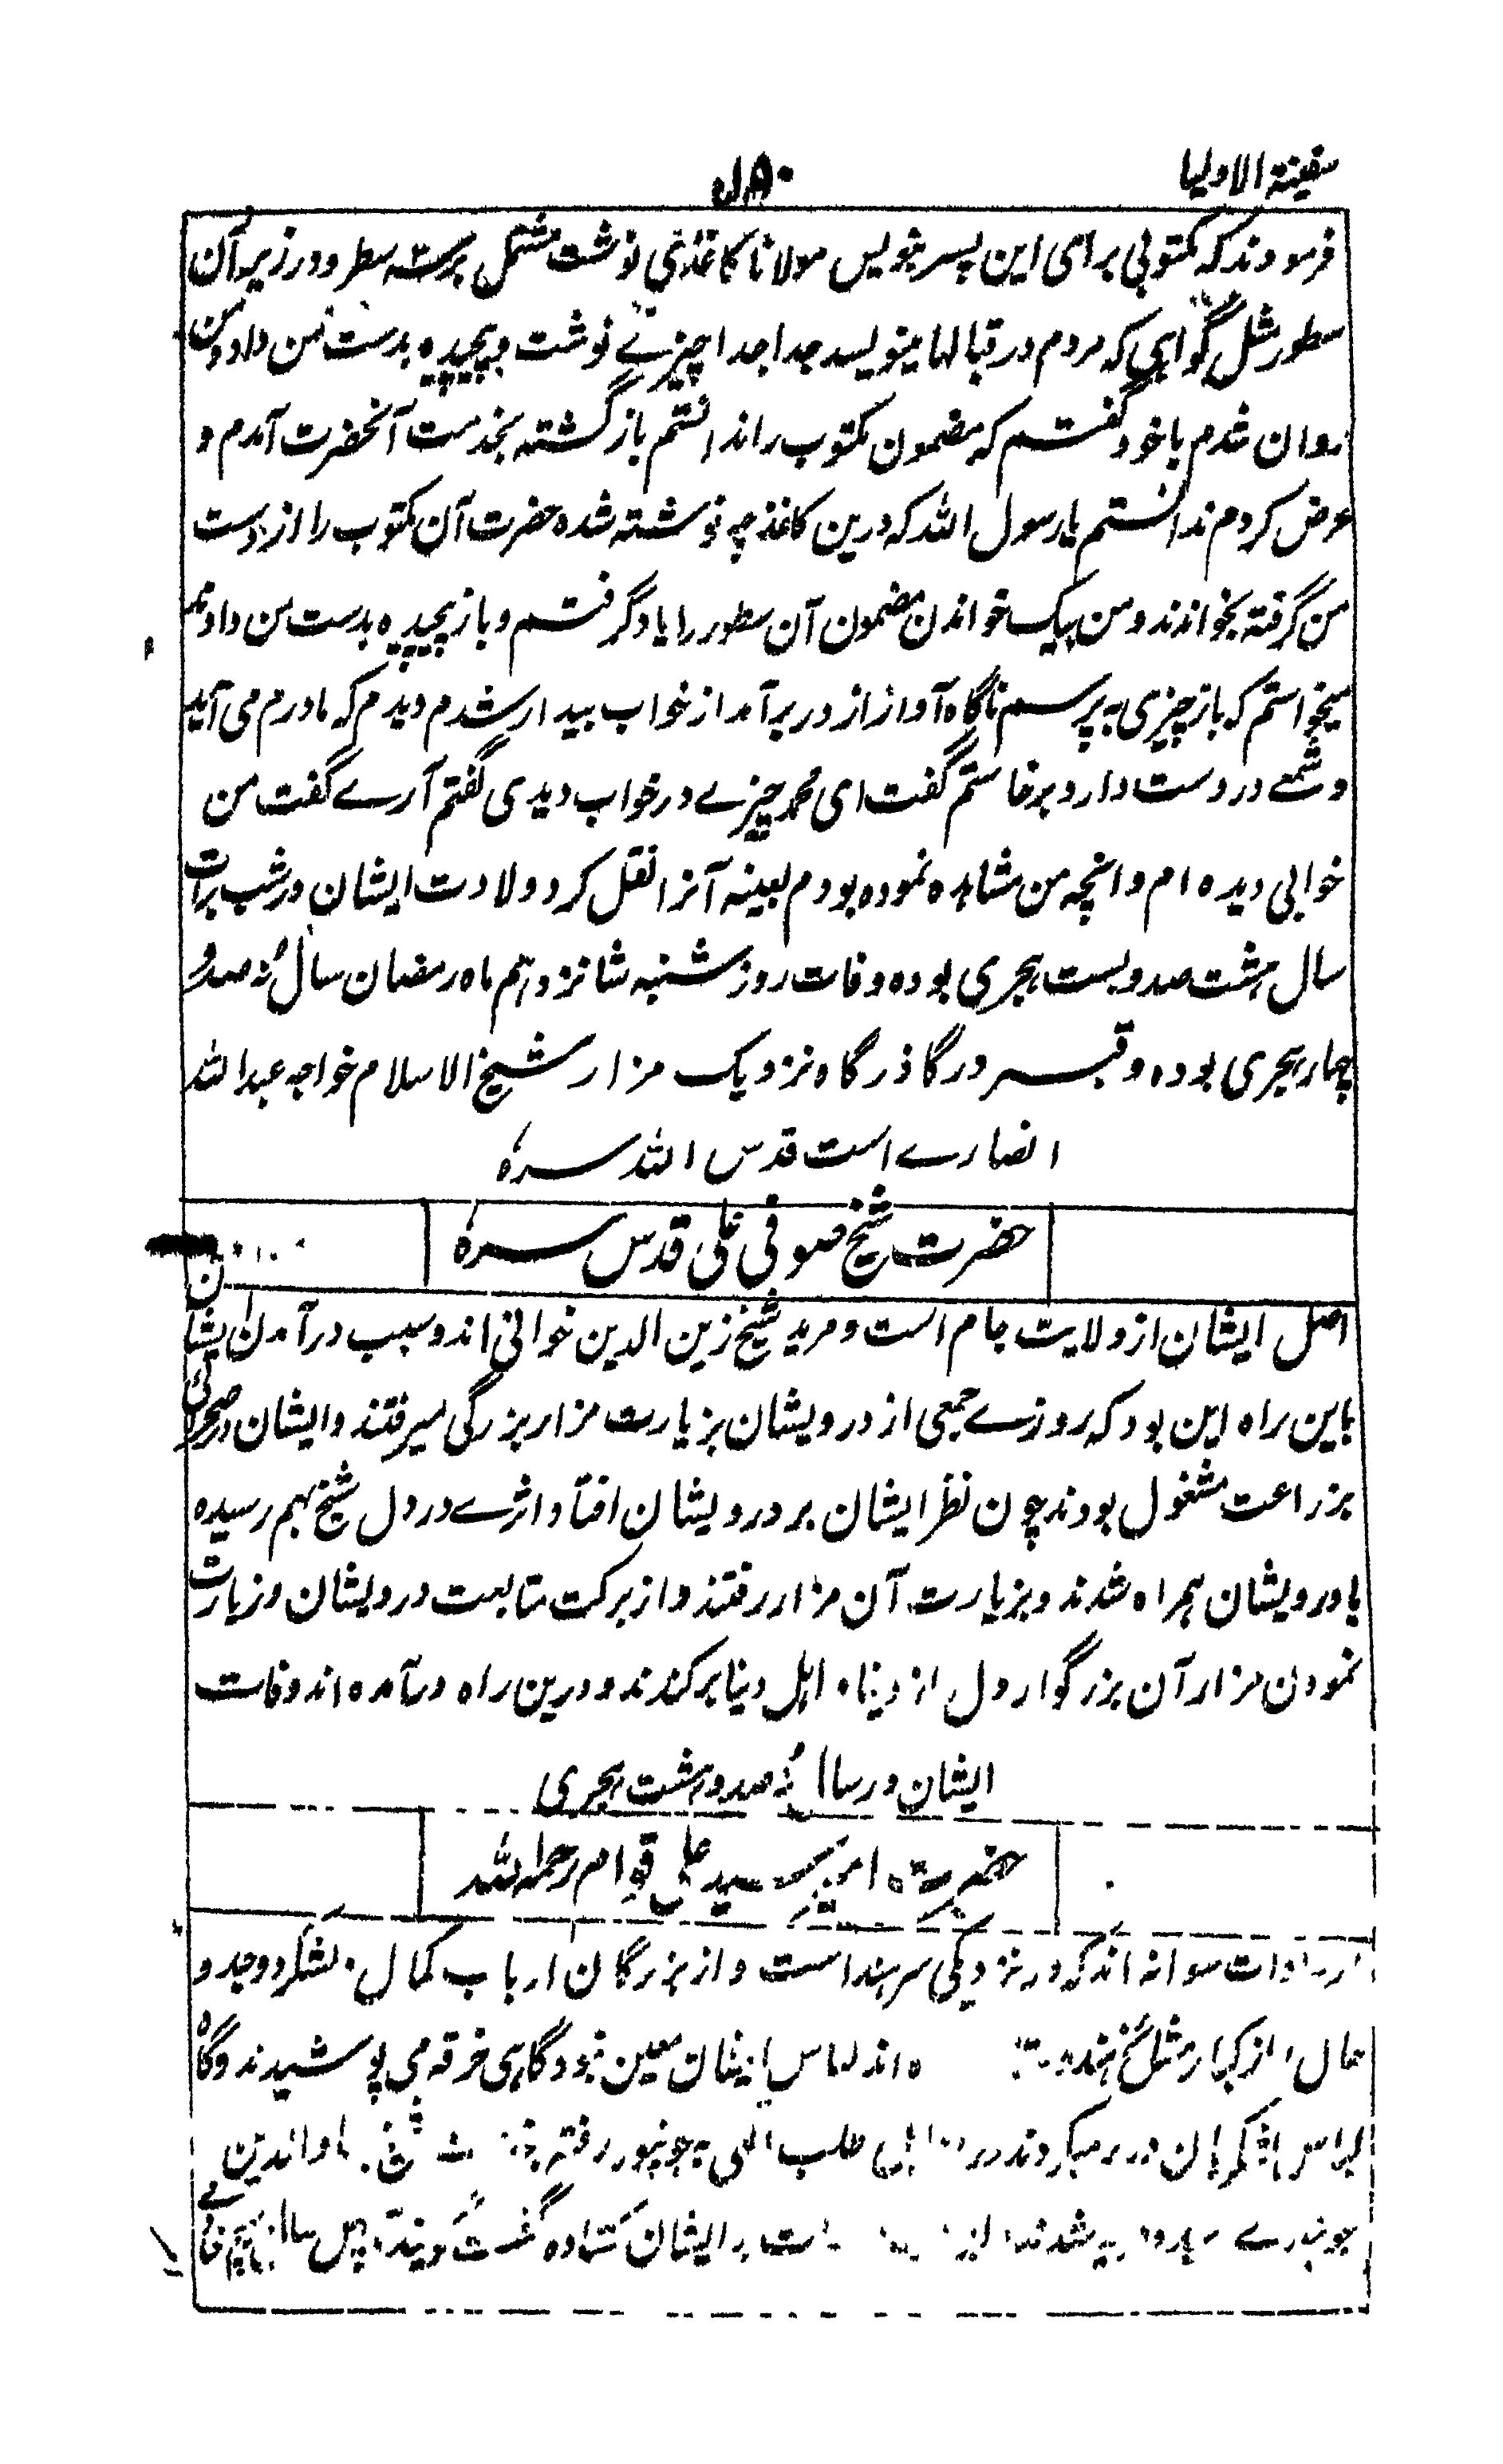 سفینة الاولیا
فرمودند که مکتوبی برای این پسر بنویس مولانا کاغذی نوشت مشتمل بر سه سطر و در زیر آن
سطور مثل گواهی که مردم در قبالها مینویسد جدا جدا چیزے نوشت و پیچیده بدست من داد و من
روان شدم با خود گفتم که مضمون مکتوب را ندانستم باز گشته بخدمت آنحضرت آمدم و
عرض کردم ندانستم یا رسول الله که درین کاغذ چه نوشته شده حضرت آن مکتوب را از دست
من گرفته بخواندند و من بیک خواندن مضمون آن سطور را یاد گرفتم و باز پیچیده بدست من دادند
میخواستم که باز چیزی به پرسم ناگاه آواز از در برآمد از خواب بیدار شدم دیدم که مادرم می آید
و شمعے در دست دارد برخاستم گفت ای محمد چیزے در خواب دیدی گفتم آرے گفت من
خوابی دیده ام و انچه من مشاهده نموده بودم بعینه آنرا نقل کرد ولادت ایشان در شب برات
سال هشت صد و بست هجری بوده وفات روز شنبه شانزدهم ماه رمضان سال نه صد و
چهار هجری بوده و قبر در گاذرگاه نزدیک مزار شیخ الاسلام خواجه عبدالله
انصارے است قدس الله سره
حضرت شیخ صوفی علی قدس سره
اصل ایشان از ولایت جام است و مرید شیخ زین الدین خوافی اند و سبب درآمدن ایشان
باین راه این بود که روزے جمعی از درویشان بزیارت مزار بزرگی میرفتند و ایشان در صحرائی
بزراعت مشغول بودند چون نظر ایشان بر درویشان افتاد اثرے در دل شیخ بهم رسیده
با درویشان همراه شدند و بزیارت آن مزار رفتند و از برکت متابعت درویشان و زیارت
نمودن مزار آن بزرگوار دل از دنیا و اهل دنیا برکندند و درین راه درآمده اند وفات
ایشان در سال نه صد و هشت هجری
حضرت امیر سید علی قوام رحمه الله
سادات سوانه اند که در نزدیکی سرهند است و از بزرگان ارباب کمال و شکر و وجد و
حال و از کبار مشایخ هند اند لباس ایشان معین نبود گاهی خرقه می پوشیدند و گاه
لباس لشکریان در بر میکردند در طلب الهی به جونپور رفته شیخ بهاوالدین
جونپورے شدند بر ایشان کشاده گشت گویند چهل سال